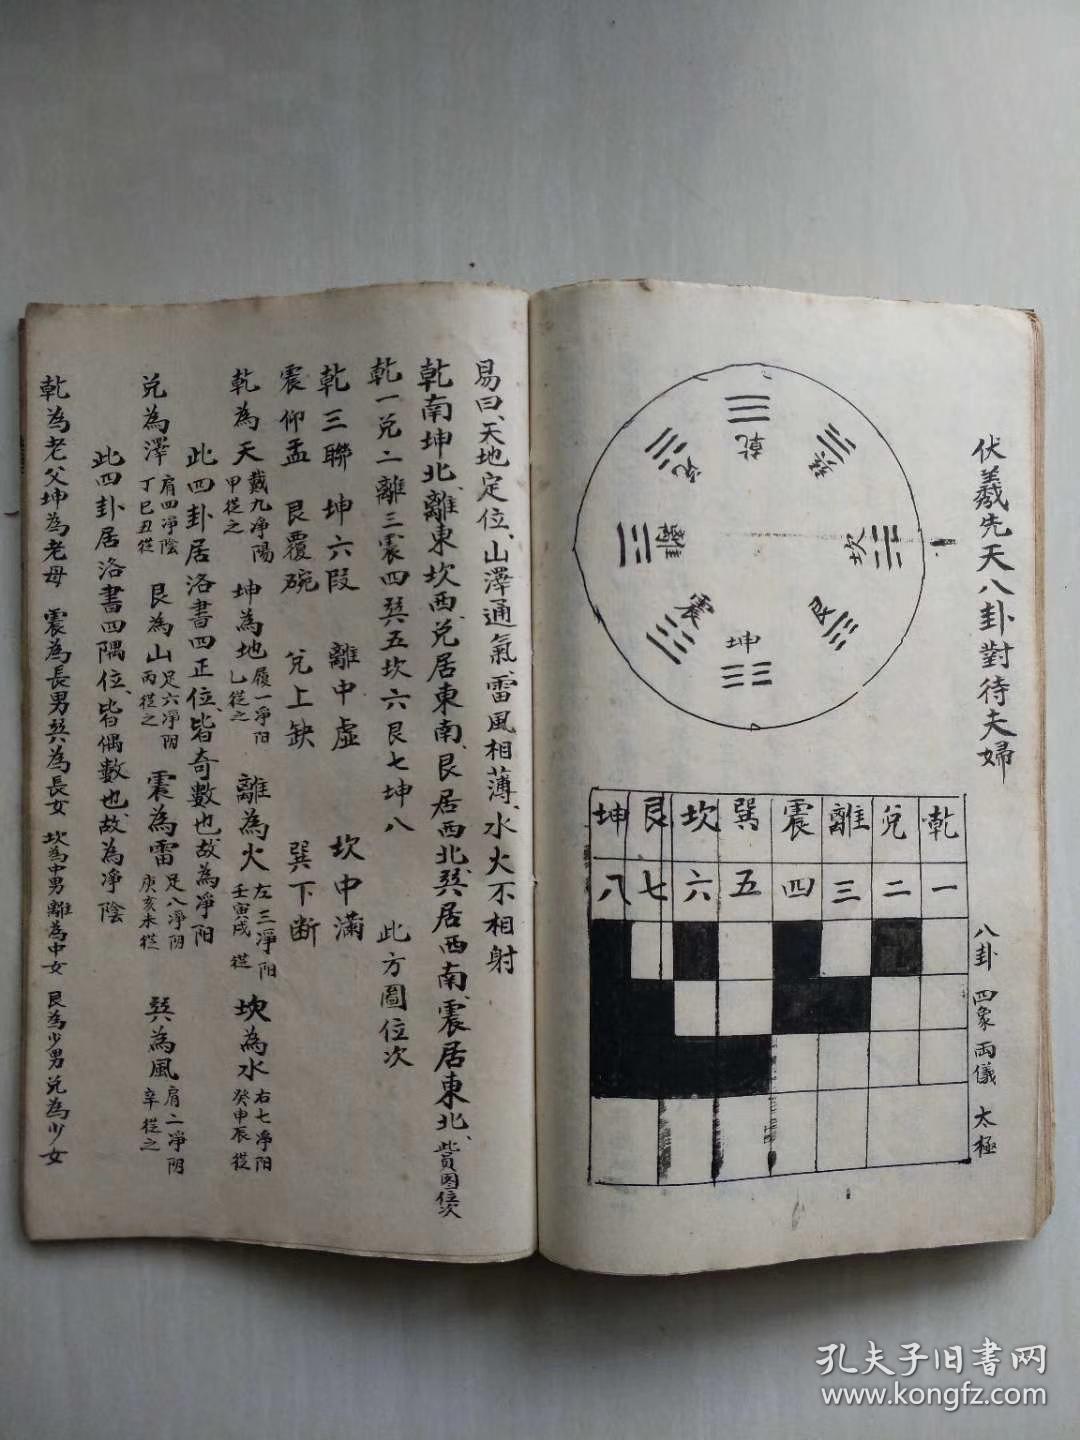 伏羲先天八卦對待夫婦
乾
兌
巽
離
坎
震
艮
坤
乾 兌 離 震 巽 坎 艮 坤
一 二 三 四 五 六 七 八
八卦 四象 兩儀 太極
易曰、天地定位、山澤通氣、雷風相薄、水火不相射
乾南坤北、離東坎西、兌居東南、艮居西北、巽居西南、震居東北、此員图位次
乾一兌二離三震四巽五坎六艮七坤八 此方圖位次
乾三聯 坤六段 離中虛 坎中滿
震仰盂 艮覆碗 兌上缺 巽下断
乾為天 戴九淨陽 甲從之 坤為地 履一淨阳 乙從之 離為火 左三淨阳 壬寅戌從 坎為水 右七淨阳 癸申辰從
此四卦居洛書四正位、皆奇數也、故為淨阳
兌為澤 肩四淨陰 丁巳丑從 艮為山 足六淨阴 丙從之 震為雷 足八淨阴 庚亥未從 巽為風 肩二淨阴 辛從之
此四卦居洛書四隅位、皆偶數也、故為淨陰
乾為老父坤為老母 震為長男巽為長女 坎為中男離為中女 艮為少男兌為少女
孔夫子旧書网
www.kongfz.com